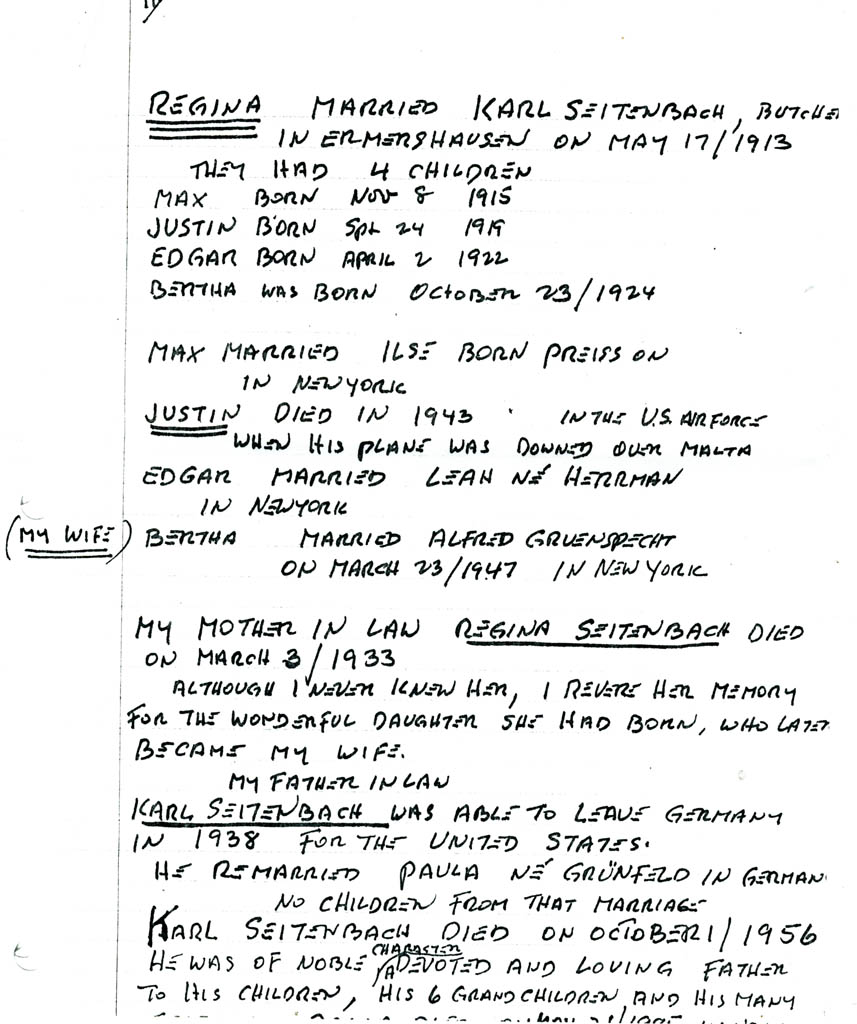 REGINA MARRIED KARL SEITENBACH, BUTCHE
IN ERMERSHAUSEN ON MAY 17/1913
THEY HAD 4 CHILDREN
MAX BORN NOV 8 1915
JUSTIN BORN SPL 24 1919
EDGAR BORN APRIL 2 1922
BERTHA WAS BORN OCTOBER 23/1924
MAX MARRIED ILSE BORN PREISS ON
IN NEWYORK
JUSTIN DIED IN 1943 IN THE U.S. AIR FORCE
WHEN HIS PLANE WAS DOWNED OVER MALTA
EDGAR MARRIED LEAH NÉ HERRMAN
IN NEWYORK
(MY WIFE) BERTHA MARRIED ALFRED GRUENSPECHT
ON MARCH 23/1947 IN NEW YORK
MY MOTHER IN LAW REGINA SEITENBACH DIED
ON MARCH 3/1933
ALTHOUGH I NEVER KNEW HER, I REVERE HER MEMORY
FOR THE WONDERFUL DAUGHTER SHE HAD BORN, WHO LATER
BECAME MY WIFE.
MY FATHER IN LAW
KARL SEITENBACH WAS ABLE TO LEAVE GERMANY
IN 1938 FOR THE UNITED STATES.
HE REMARRIED PAULA NÉ GRÜNFELD IN GERMAN
NO CHILDREN FROM THAT MARRIAGE
KARL SEITENBACH DIED ON OCTOBER 1/1956
HE WAS OF NOBLE CHARACTER A DEVOTED AND LOVING FATHER
TO HIS CHILDREN, HIS 6 GRANDCHILDREN AND HIS MANY